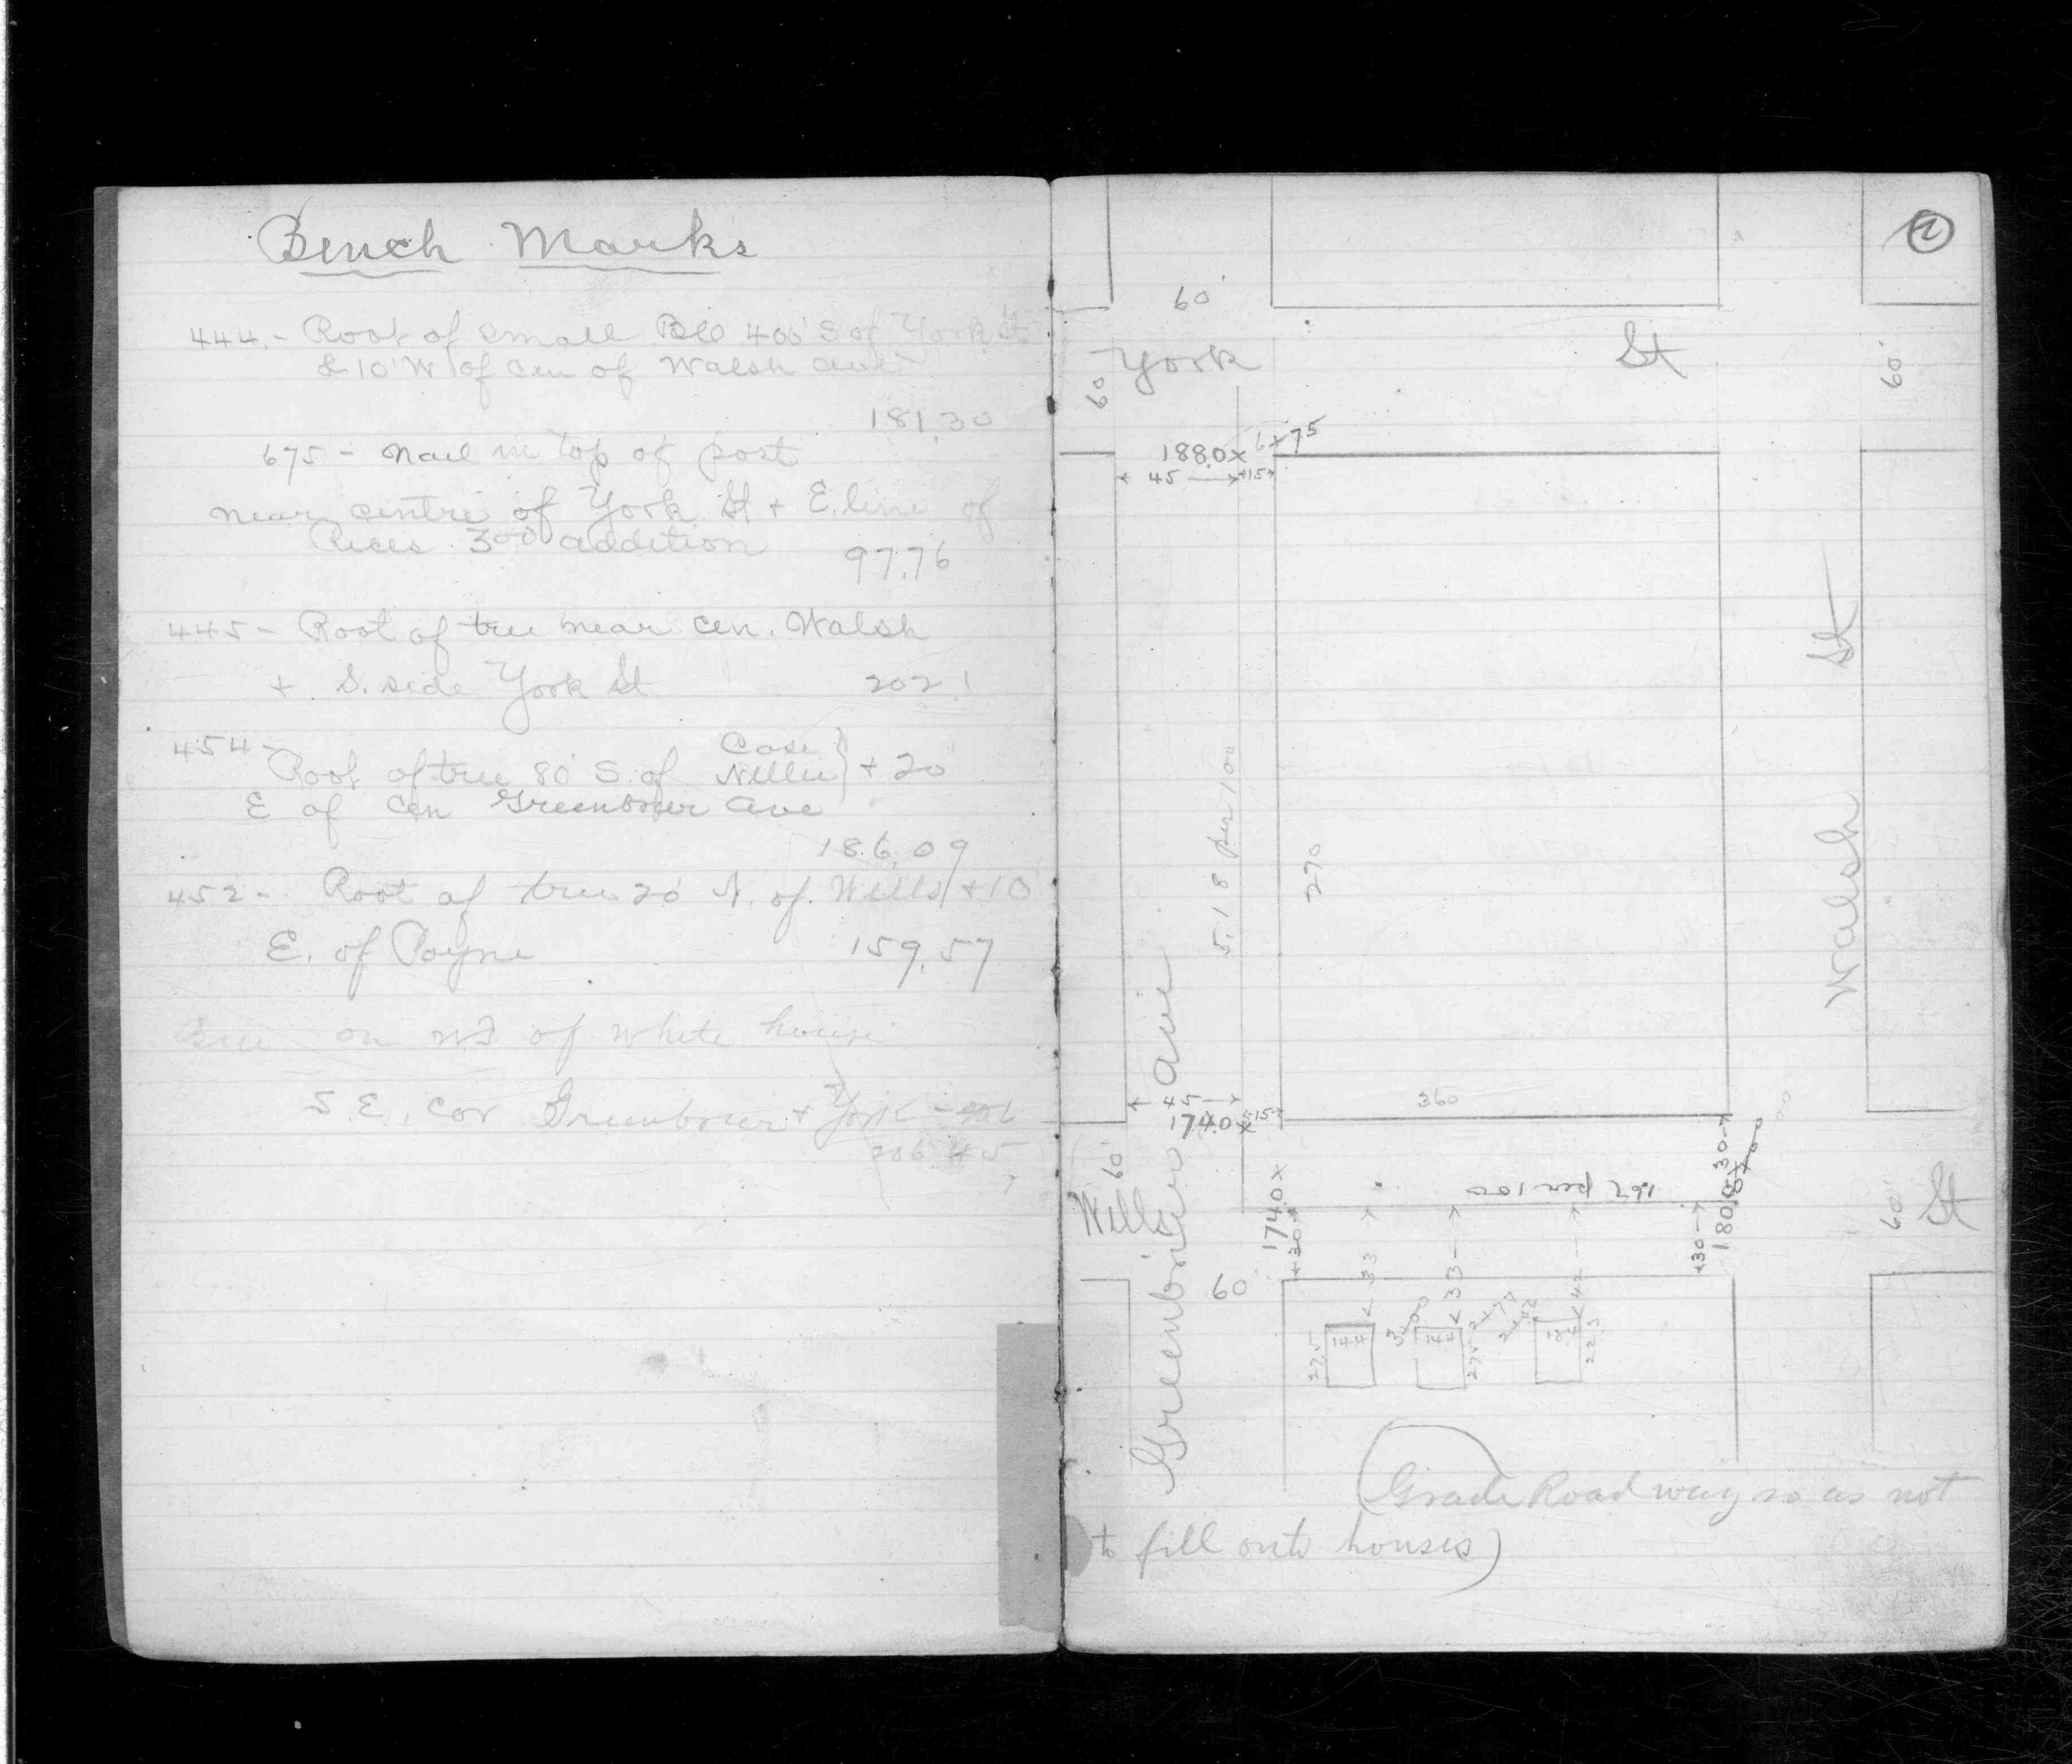 Bench Marks
444.- Root of small 400' S of York St
& 10' W of cen of Walsh ave
181.30
675 - Nail in top of post
near centre of York St + E. line of
Rices 300 addition
97.76
445 - Root of tree near cen. Walsh
+ S. side York St 202.1
454 -
Root of tree 80' S. of Case Nellie } + 20'
E of cen Greenbrier Ave
186.09
452 - Root of tree 20' N. of Wells + 10'
E. of Payne 159.57
on of white house
S.E. cor Greenbrier + York
206.45
2
60'
York St
60'
60'
188.0x 6+75
45 15
5.18 per 100
270
Walsh St
360
45
174.0x 15
60'
Wells St
Greenbrier Ave
174.0x
30
1.67 per 100
30
180.0x 0+00
30
60'
60
33
33
42
27.5
14.4
3+00
14.4
27.5
2+77
22.3
(Grade Roadway so as not
to fill onto houses)